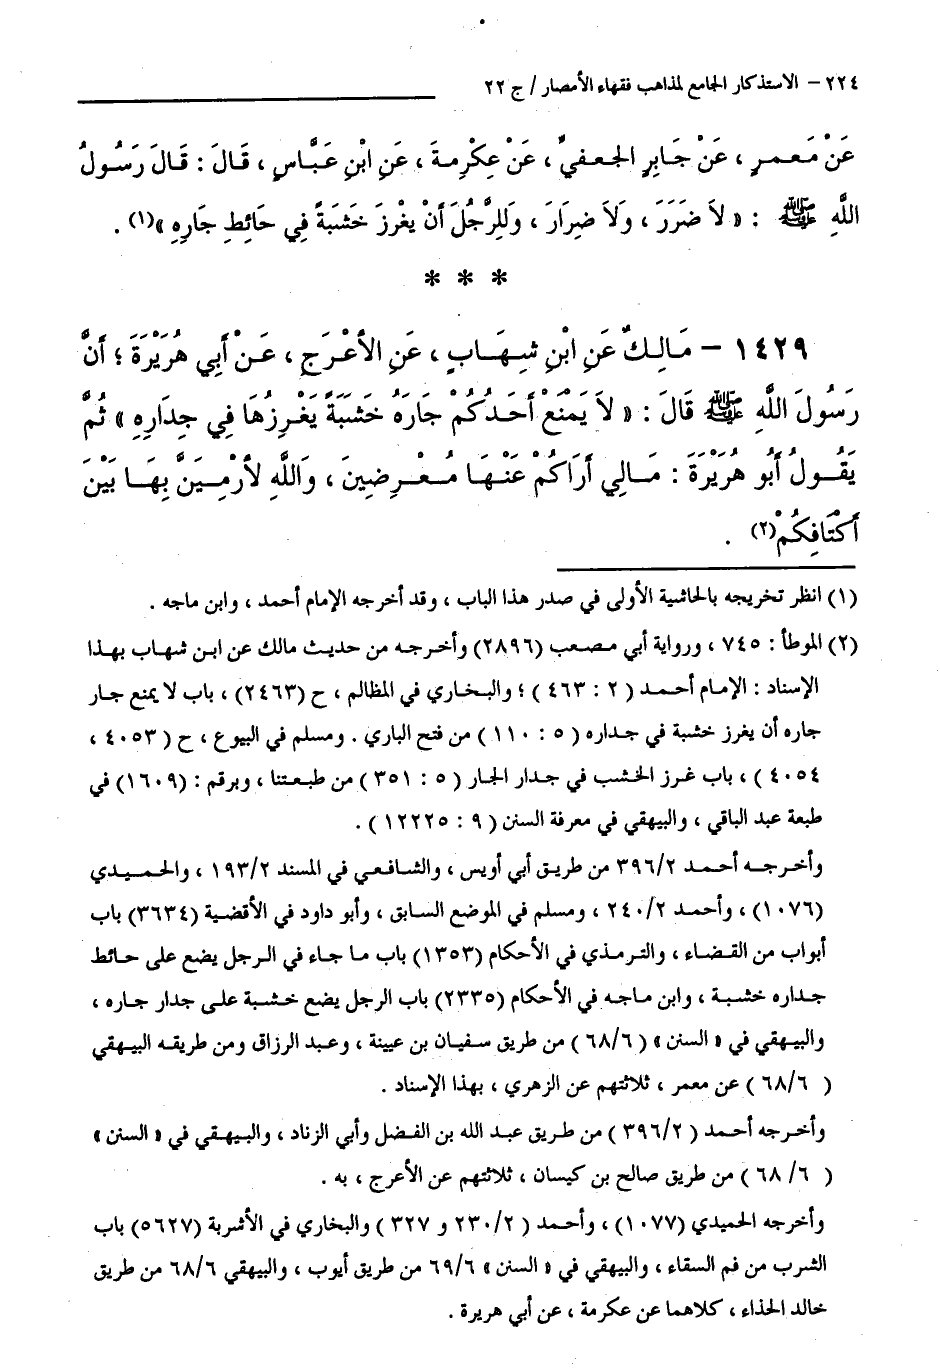 ٢٢٤ – الاستذكار الجامع لمذاهب فقهاء الأمصار / ج ٢٢
عَنْ مَعمرٍ ، عَنْ جَابِرٍ الجعفيِّ ، عَنْ عِكْرِمةَ ، عَنِ ابْنِ عَبَّاسٍ ، قَالَ : قَالَ رَسُولُ
اللَّهِ ﷺ : « لاَ ضَرَرَ ، وَلاَ ضِرَارَ ، وَللِرَّجُلَ أَنْ يغْرزَ خَشَبَةً فِي حَائِطِ جَارِهِ »(١) .
* * *
١٤٢٩ – مَالِكٌ عَنِ ابْنِ شِهَابٍ ، عَنِ الأعْرَجِ ، عَنْ أَبِي هُرَيْرَةَ ؛ أَنَّ
رَسُولَ اللَّهِ ﷺ قَالَ : « لاَ يَمْنَعْ أَحَدُكُمْ جَارَهُ خَشَبَةً يَغْرِزُهَا فِي جِدَارِهِ » ثُمَّ
يَقُولُ أَبُو هُرَيْرَةَ : مَالِي أَرَاكُمْ عَنْهَا مُعْرِضِينَ ، وَاللَّهِ لأرْمِيَنَّ بِهَا بَيْنَ
أَكْتَافِكُمْ(٢) .
(١) انظر تخريجه بالحاشية الأولى في صدر هذا الباب ، وقد أخرجه الإمام أحمد ، وابن ماجه .
(٢) الموطأ : ٧٤٥ ، ورواية أبي مصعب (٢٨٩٦) وأخرجه من حديث مالك عن ابن شهاب بهذا
الإسناد : الإمام أحمد ( ٢ : ٤٦٣ ) ؛ والبخاري في المظالم ، ح (٢٤٦٣) ، باب لا يمنع جار
جاره أن يغرز خشبة في جداره ( ٥ : ١١٠ ) من فتح الباري . ومسلم في البيوع ، ح ( ٤٠٥٣ ،
٤٠٥٤ ) ، باب غرز الخشب في جدار الجار ( ٥ : ٣٥١ ) من طبعتنا ، وبرقم : (١٦٠٩) في
طبعة عبد الباقي ، والبيهقي في معرفة السنن ( ٩ : ١٢٢٢٥ ) .
وأخرجه أحمد ٣٩٦/٢ من طريق أبي أويس ، والشافعي في المسند ١٩٣/٢ ، والحميدي
(١٠٧٦) ، وأحمد ٢٤٠/٢ ، ومسلم في الموضع السابق ، وأبو داود في الأقضية (٣٦٣٤) باب
أبواب من القضاء ، والترمذي في الأحكام (١٣٥٣) باب ما جاء في الرجل يضع على حائط
جداره خشبة ، وابن ماجه في الأحكام (٢٣٣٥) باب الرجل يضع خشبة على جدار جاره ،
والبيهقي في « السنن » ( ٦٨/٦ ) من طريق سفيان بن عيينة ، وعبد الرزاق ومن طريقه البيهقي
( ٦٨/٦ ) عن معمر ، ثلاثتهم عن الزهري ، بهذا الإسناد .
وأخرجه أحمد ( ٣٩٦/٢ ) من طريق عبد الله بن الفضل وأبي الزناد ، والبيهقي في « السنن »
( ٦/ ٦٨ ) من طريق صالح بن كيسان ، ثلاثتهم عن الأعرج ، به .
وأخرجه الحميدي (١٠٧٧) ، وأحمد ( ٢٣٠/٢ و ٣٢٧ ) والبخاري في الأشربة (٥٦٢٧) باب
الشرب من فم السقاء ، والبيهقي في « السنن » ٦٩/٦ من طريق أيوب ، والبيهقي ٦٨/٦ من طريق
خالد الحذاء ، كلاهما عن عكرمة ، عن أبي هريرة .